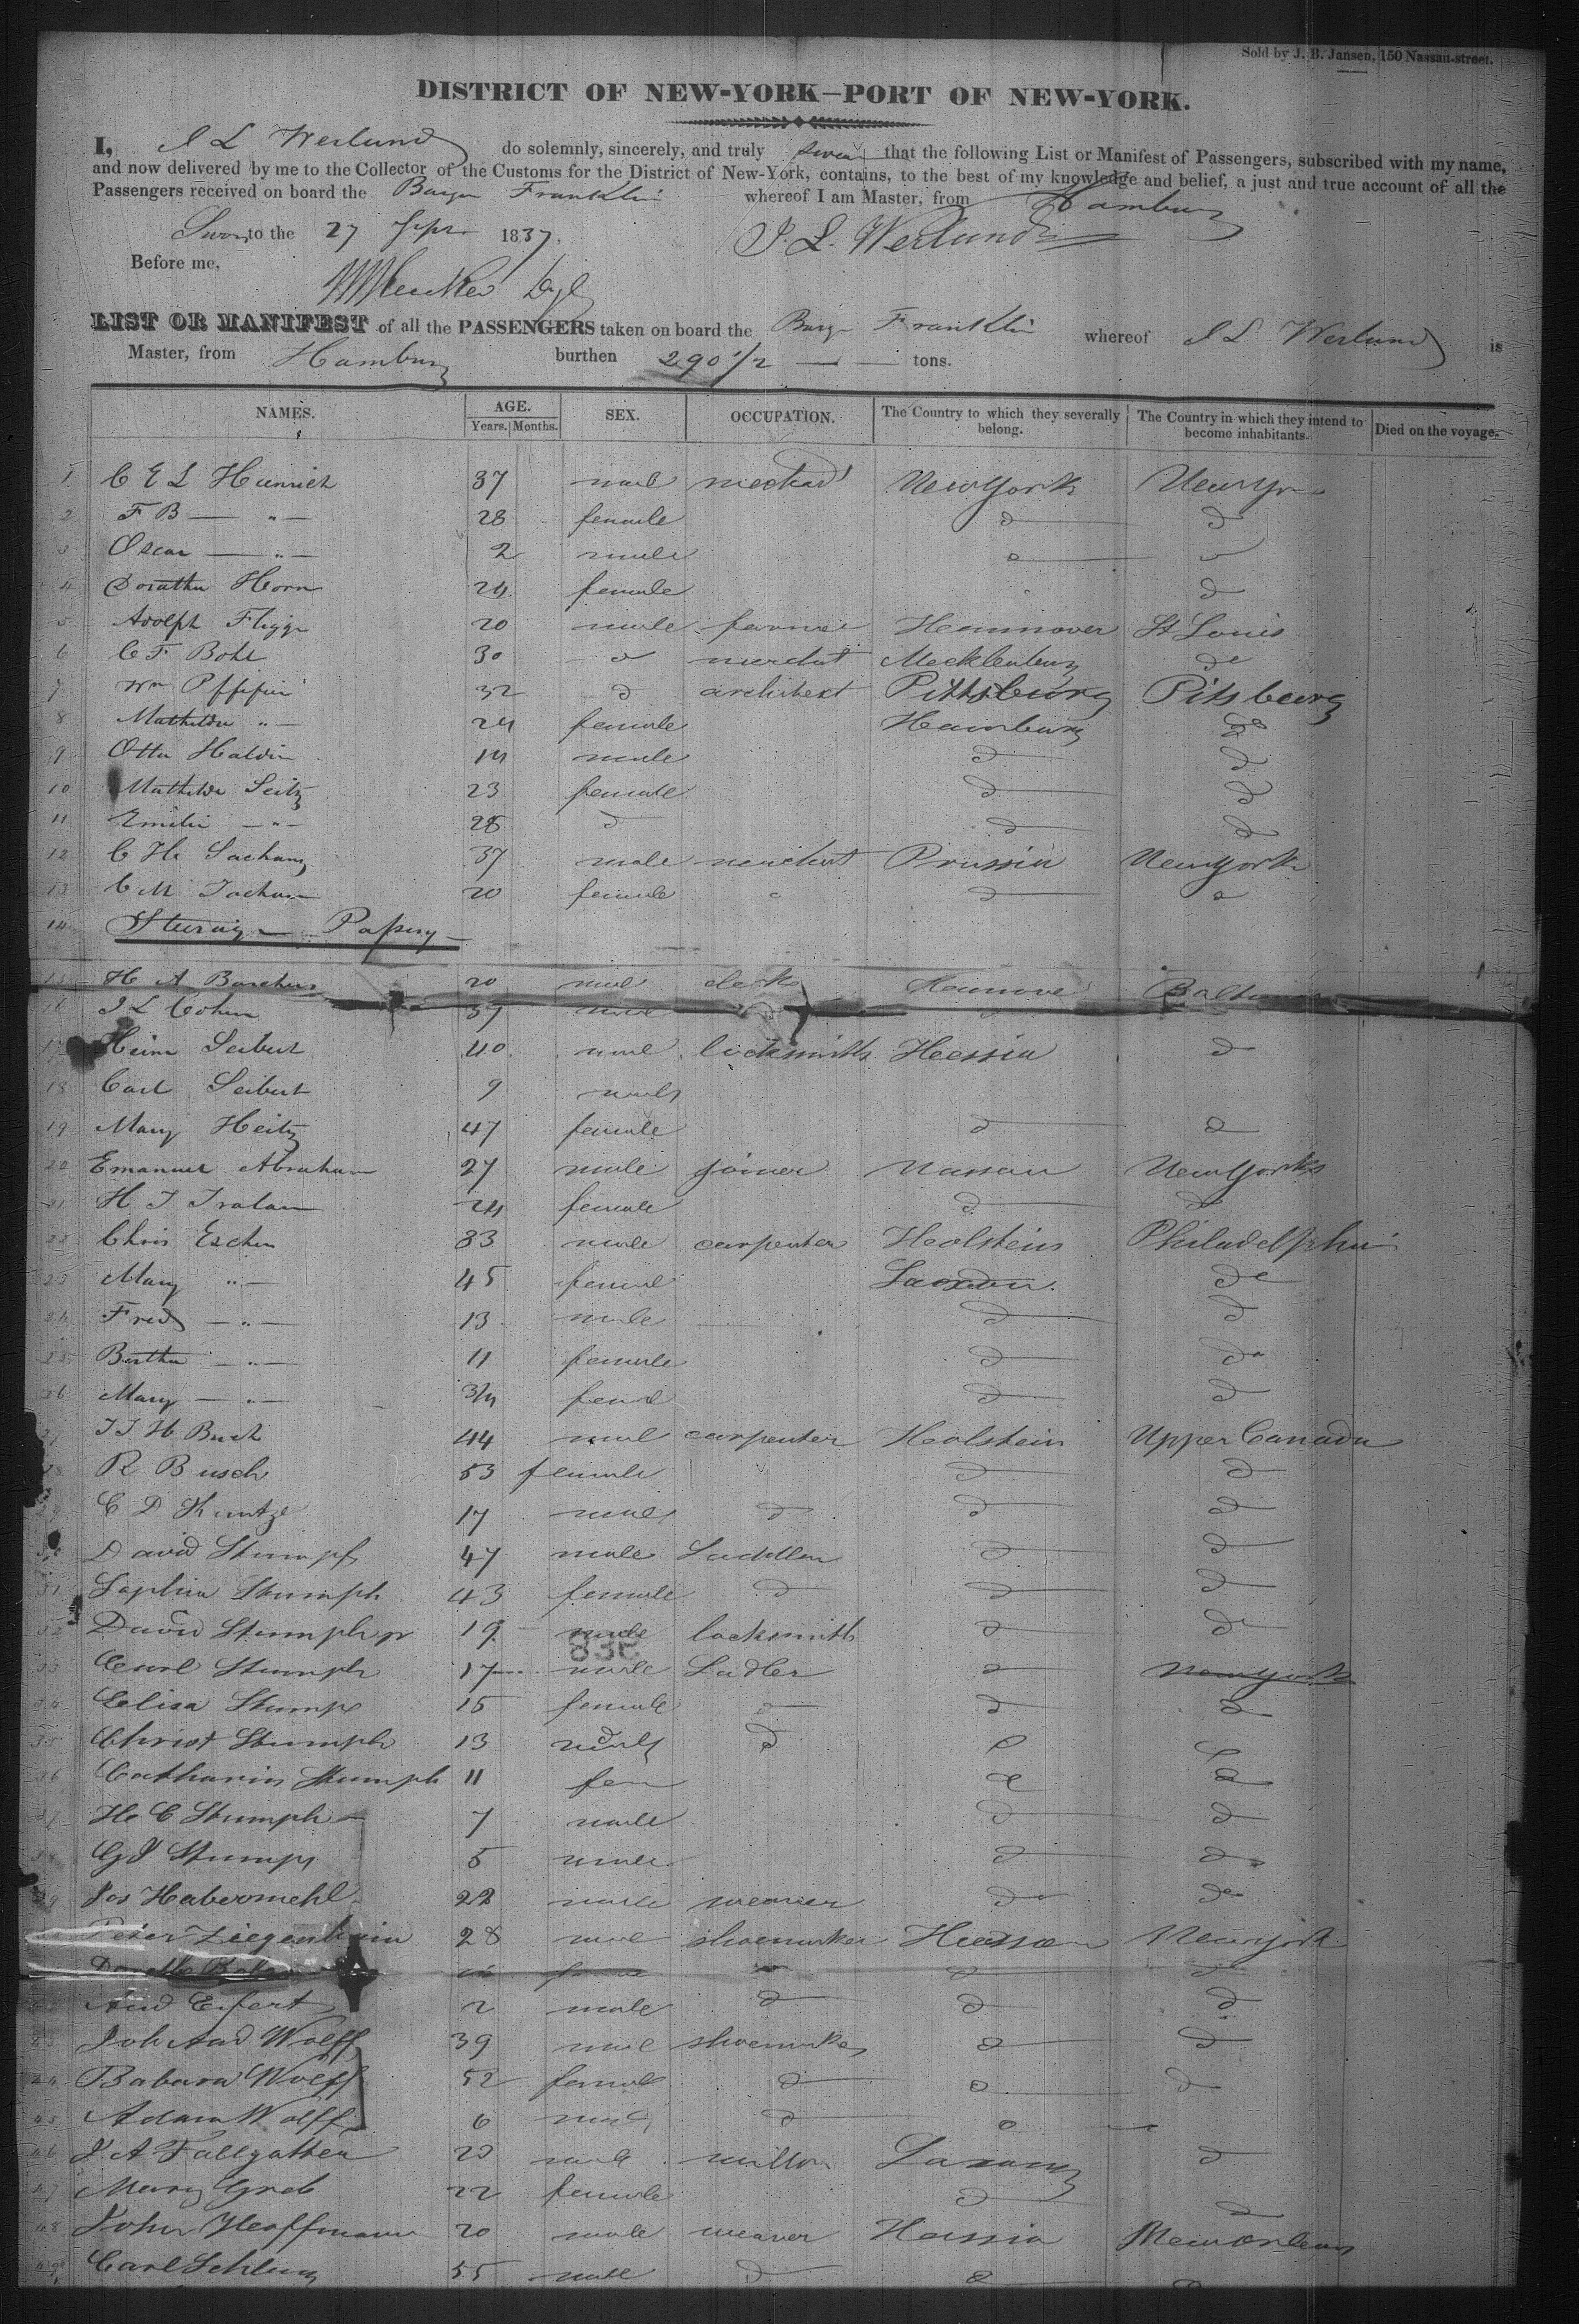 Sold by J. B. Jansen, 150 Nassau-street.
DISTRICT OF NEW-YORK—PORT OF NEW-YORK.
I, J L Werlund do solemnly, sincerely, and truly swear that the following List or Manifest of Passengers, subscribed with my name,
and now delivered by me to the Collector of the Customs for the District of New-York, contains, to the best of my knowledge and belief, a just and true account of all the
Passengers received on board the Barque Franklin whereof I am Master, from Hamburg
Sworn to the 27 Sepr 1837. J. L. Werlund
Before me,
LIST OR MANIFEST of all the PASSENGERS taken on board the Barque Franklin whereof J L Werlund is
Master, from Hamburg burthen 290 1/2 — — tons.
NAMES. AGE. SEX. OCCUPATION. The Country to which they severally belong. The Country in which they intend to become inhabitants. Died on the voyage.
Years. Months.
1 C E L Heinrich 37 male New York New York
2 F B — " — 28 female d d
3 Oscar — " — 2 male d
4 Dorathea Horn 24 female d
5 Adolph Flügge 20 male farmer Hannover St Louis
6 C F Bohl 30 d merchat Mecklenburg do
7 Wm 32 d architext Pittsburg Pitsburg
8 Mathilde " — 24 female Hamburg do
9 Otto Haldin 14 male d d
10 Mathilde Seitz 23 female d d
11 Emilie — " — 28 d d d
12 C H Sachang 37 male merchat Prussia New York
13 C M 20 female d d
14 Steerage — Passeng —
15 H A Borchers 20 male clerk Hannover Baltimore
16 J L Cohen 37 male d
17 Heinr Seibert 40 male locksmith Hessia d
18 Carl Seibert 9 male
19 Mary Heitz 47 female d d
20 Emanuel Abraham 27 male joiner Nassau New York
21 H J 24 female d do
22 Chris Eschen 33 male carpenter Holstein Philadelphia
23 Mary " — 45 female do
24 Fred — " — 13 male d d
25 Bertha — " — 11 female d do
26 Mary — " — 3/4 femal d d
27 J J H Busch 44 male carpenter Holstein Upper Canada
28 R Busch 53 female d d
29 C D Kuntze 17 male d d d
30 David Stumpf 47 male Saddler d d
31 Sophia Stumph 43 female d d d
32 David Stumph jr 19 male locksmith d d
33 Carl Stumph 17 male Sadler d New York
838
34 Elisa Stumph 15 female d d d
35 Christ Stumph 13 male d d
36 Catharin Stumph 11 fem d d
37 H C Stumph 7 male d d
38 G J Stumph 5 male d d
39 Jos Habermehl 22 male weaver do do
Peter Ziegenhain 28 male shoemaker Hessen New York
d d
And Eifert 2 male d d d
43 Joh And Wolff 39 male shoemaker d d
44 Babara Wolff 52 female d d d
45 Adam Wolff 6 male d d
46 J A Fallgatter 20 male miller Saxony d
47 Mary Greb 22 female d d
48 John Hoffmann 20 male weaver Hessia New Orleans
49 Carl 55 male d d d